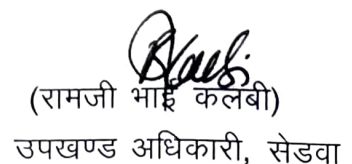 (रामजी भाई कलबी)
उपखण्ड अधिकारी, सेडवा